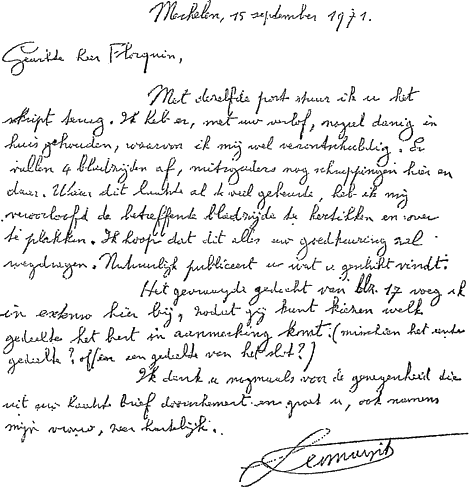 Mechelen, 15 september 1971.
Geachte heer Florquin,
Met dezelfde post stuur ik u het
skript terug. Ik heb er, met uw verlof, nogal danig in
huis gehouden, waarvoor ik mij wel verontschuldig. Er
vallen 4 bladzijden af, mitsgaders nog schrappingen hier en
daar. Waar dit laatste al te veel gebeurde, heb ik mij
veroorloofd de betreffende bladzijde te hertikken en over
te plakken. Ik hoop dat dit alles uw goedkeuring zal
wegdragen. Natuurlijk publiceert u wat u geschikt vindt.
Het gevraagde gedicht van blz. 17 voeg ik
in extenso hier bij, zodat gij kunt kiezen welk
gedeelte het best in aanmerking komt. (misschien het eerste
gedeelte? offen een gedeelte van het slot?)
Ik dank u nogmaals voor de genegenheid die
uit uw laatste brief doorschemert en groet u, ook namens
mijn vrouw, zeer hartelijk.